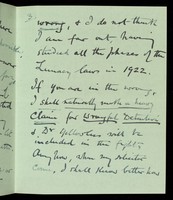 wrong, & I do not think
I am far out having
studied all the phases of the
Lunacy laws in 1922.
If you are in the wrong,
I shall naturally make a heavy
Claim for Wrongful Detention
& Dr Yellowlees will be
included in the fight.
Anyhow, when my solicitor
comes, I shall know better how